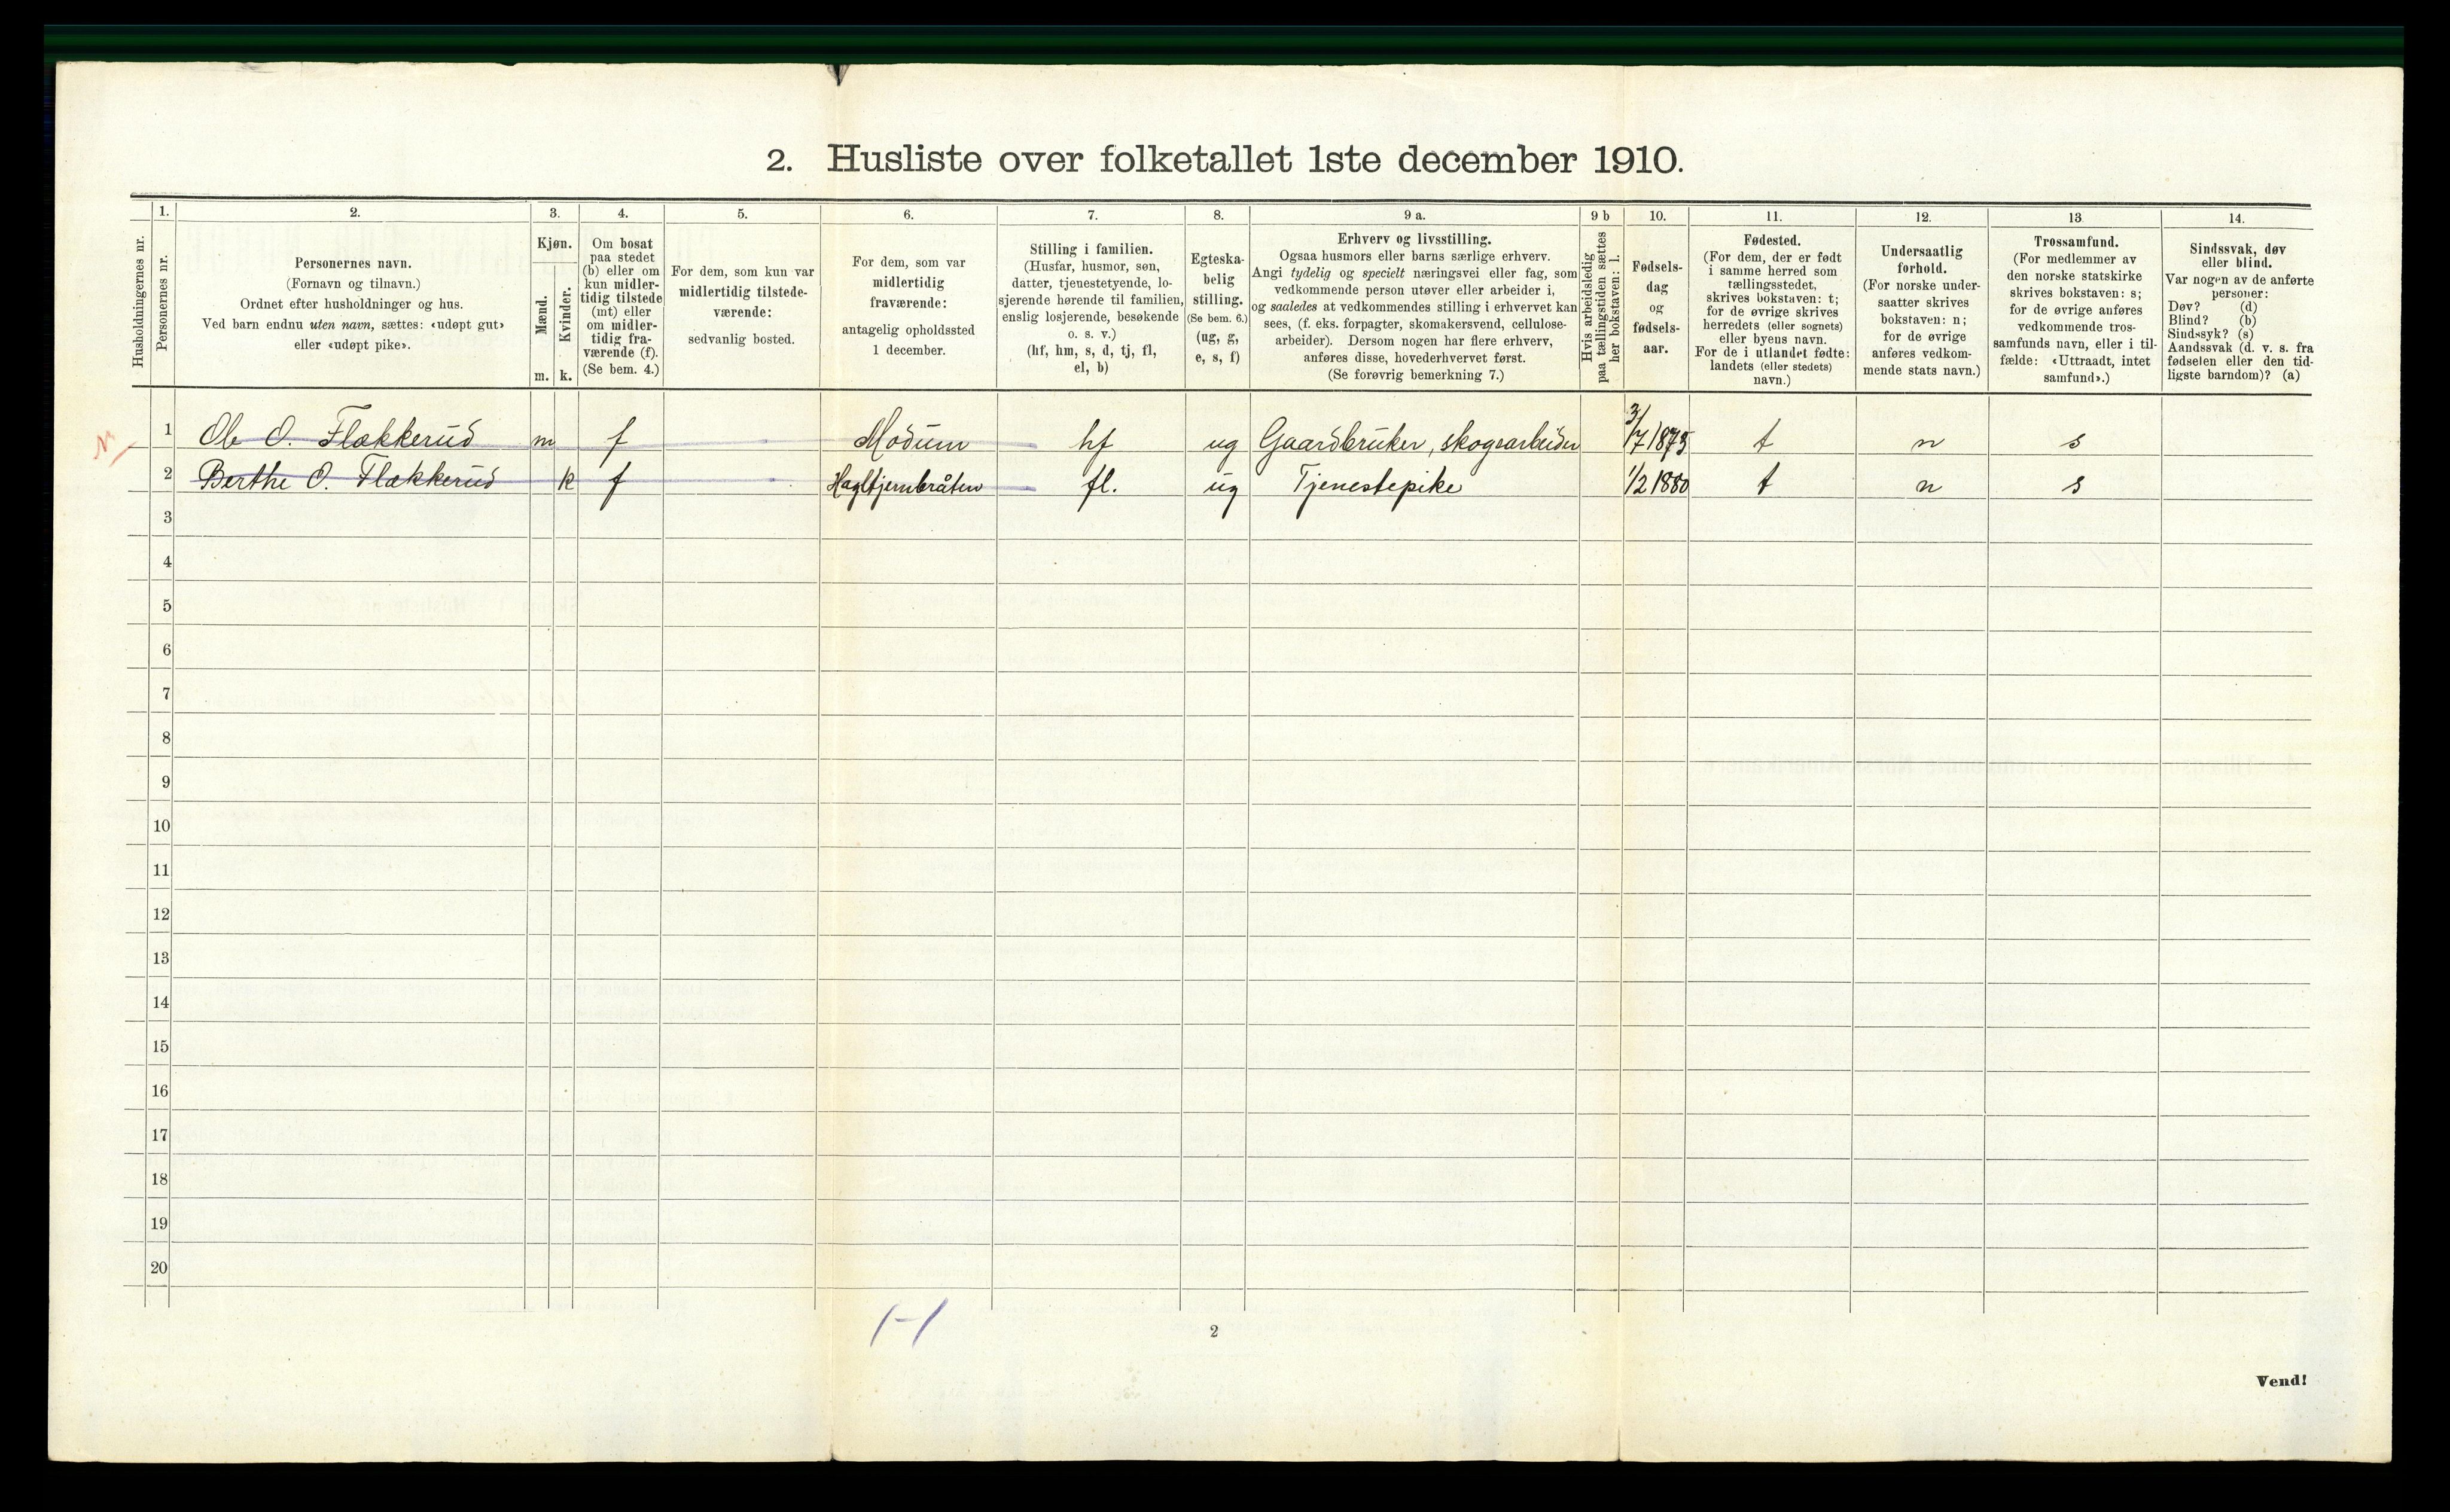 2. Husliste over folketallet 1ste december 1910.
Husholdningernes nr.
1.
Personernes nr.
2.
Personernes navn.
(Fornavn og tilnavn.)
Ordnet efter husholdninger og hus.
Ved barn endnu uten navn, sættes: «udøpt gut»
eller «udøpt pike».
3.
Kjøn.
Mænd.
Kvinder.
m. k.
4.
Om bosat
paa stedet
(b) eller om
kun midler-
tidig tilstede
(mt) eller
om midler-
tidig fra-
værende (f).
(Se bem. 4.)
5.
For dem, som kun var
midlertidig tilstede-
værende:
sedvanlig bosted.
6.
For dem, som var
midlertidig
fraværende:
antagelig opholdssted
1 december.
7.
Stilling i familien.
(Husfar, husmor, søn,
datter, tjenestetyende, lo-
sjerende hørende til familien,
enslig losjerende, besøkende
o. s. v.)
(hf, hm, s, d, tj, fl,
el, b)
8.
Egteska-
belig
stilling.
(Se bem. 6.)
(ug, g,
e, s, f)
9 a.
Erhverv og livsstilling.
Ogsaa husmors eller barns særlige erhverv.
Angi tydelig og specielt næringsvei eller fag, som
vedkommende person utøver eller arbeider i,
og saaledes at vedkommendes stilling i erhvervet kan
sees, (f. eks. forpagter, skomakersvend, cellulose-
arbeider). Dersom nogen har flere erhverv,
anføres disse, hovederhvervet først.
(Se forøvrig bemerkning 7.)
9 b
Hvis arbeidsledig
paa tællingstiden sættes
her bokstaven: l.
10.
Fødsels-
dag
og
fødsels-
aar.
11.
Fødested.
(For dem, der er født
i samme herred som
tællingsstedet,
skrives bokstaven: t;
for de øvrige skrives
herredets (eller sognets)
eller byens navn.
For de i utlandet fødte:
landets (eller stedets)
navn.)
12.
Undersaatlig
forhold.
(For norske under-
saatter skrives
bokstaven: n;
for de øvrige
anføres vedkom-
mende stats navn.)
13
Trossamfund.
(For medlemmer av
den norske statskirke
skrives bokstaven: s;
for de øvrige anføres
vedkommende tros-
samfunds navn, eller i til-
fælde: «Uttraadt, intet
samfund».)
14.
Sindssvak, døv
eller blind.
Var nogen av de anførte
personer:
Døv? (d)
Blind? (b)
Sindssyk? (s)
Aandssvak (d. v. s. fra
fødselen eller den tid-
ligste barndom)? (a)
1 Ole O. Flækkerud m f Modum hf ug Gaardbruker, skogsarbeider 3/7 1875 t n s
2 Berthe O. Flækkerud k f Hagltjernbråten fl. ug Tjenestepike 1/2 1880 t n s
3
4
5
6
7
8
9
10
11
12
13
14
15
16
17
18
19
20
1-1
2
Vend!